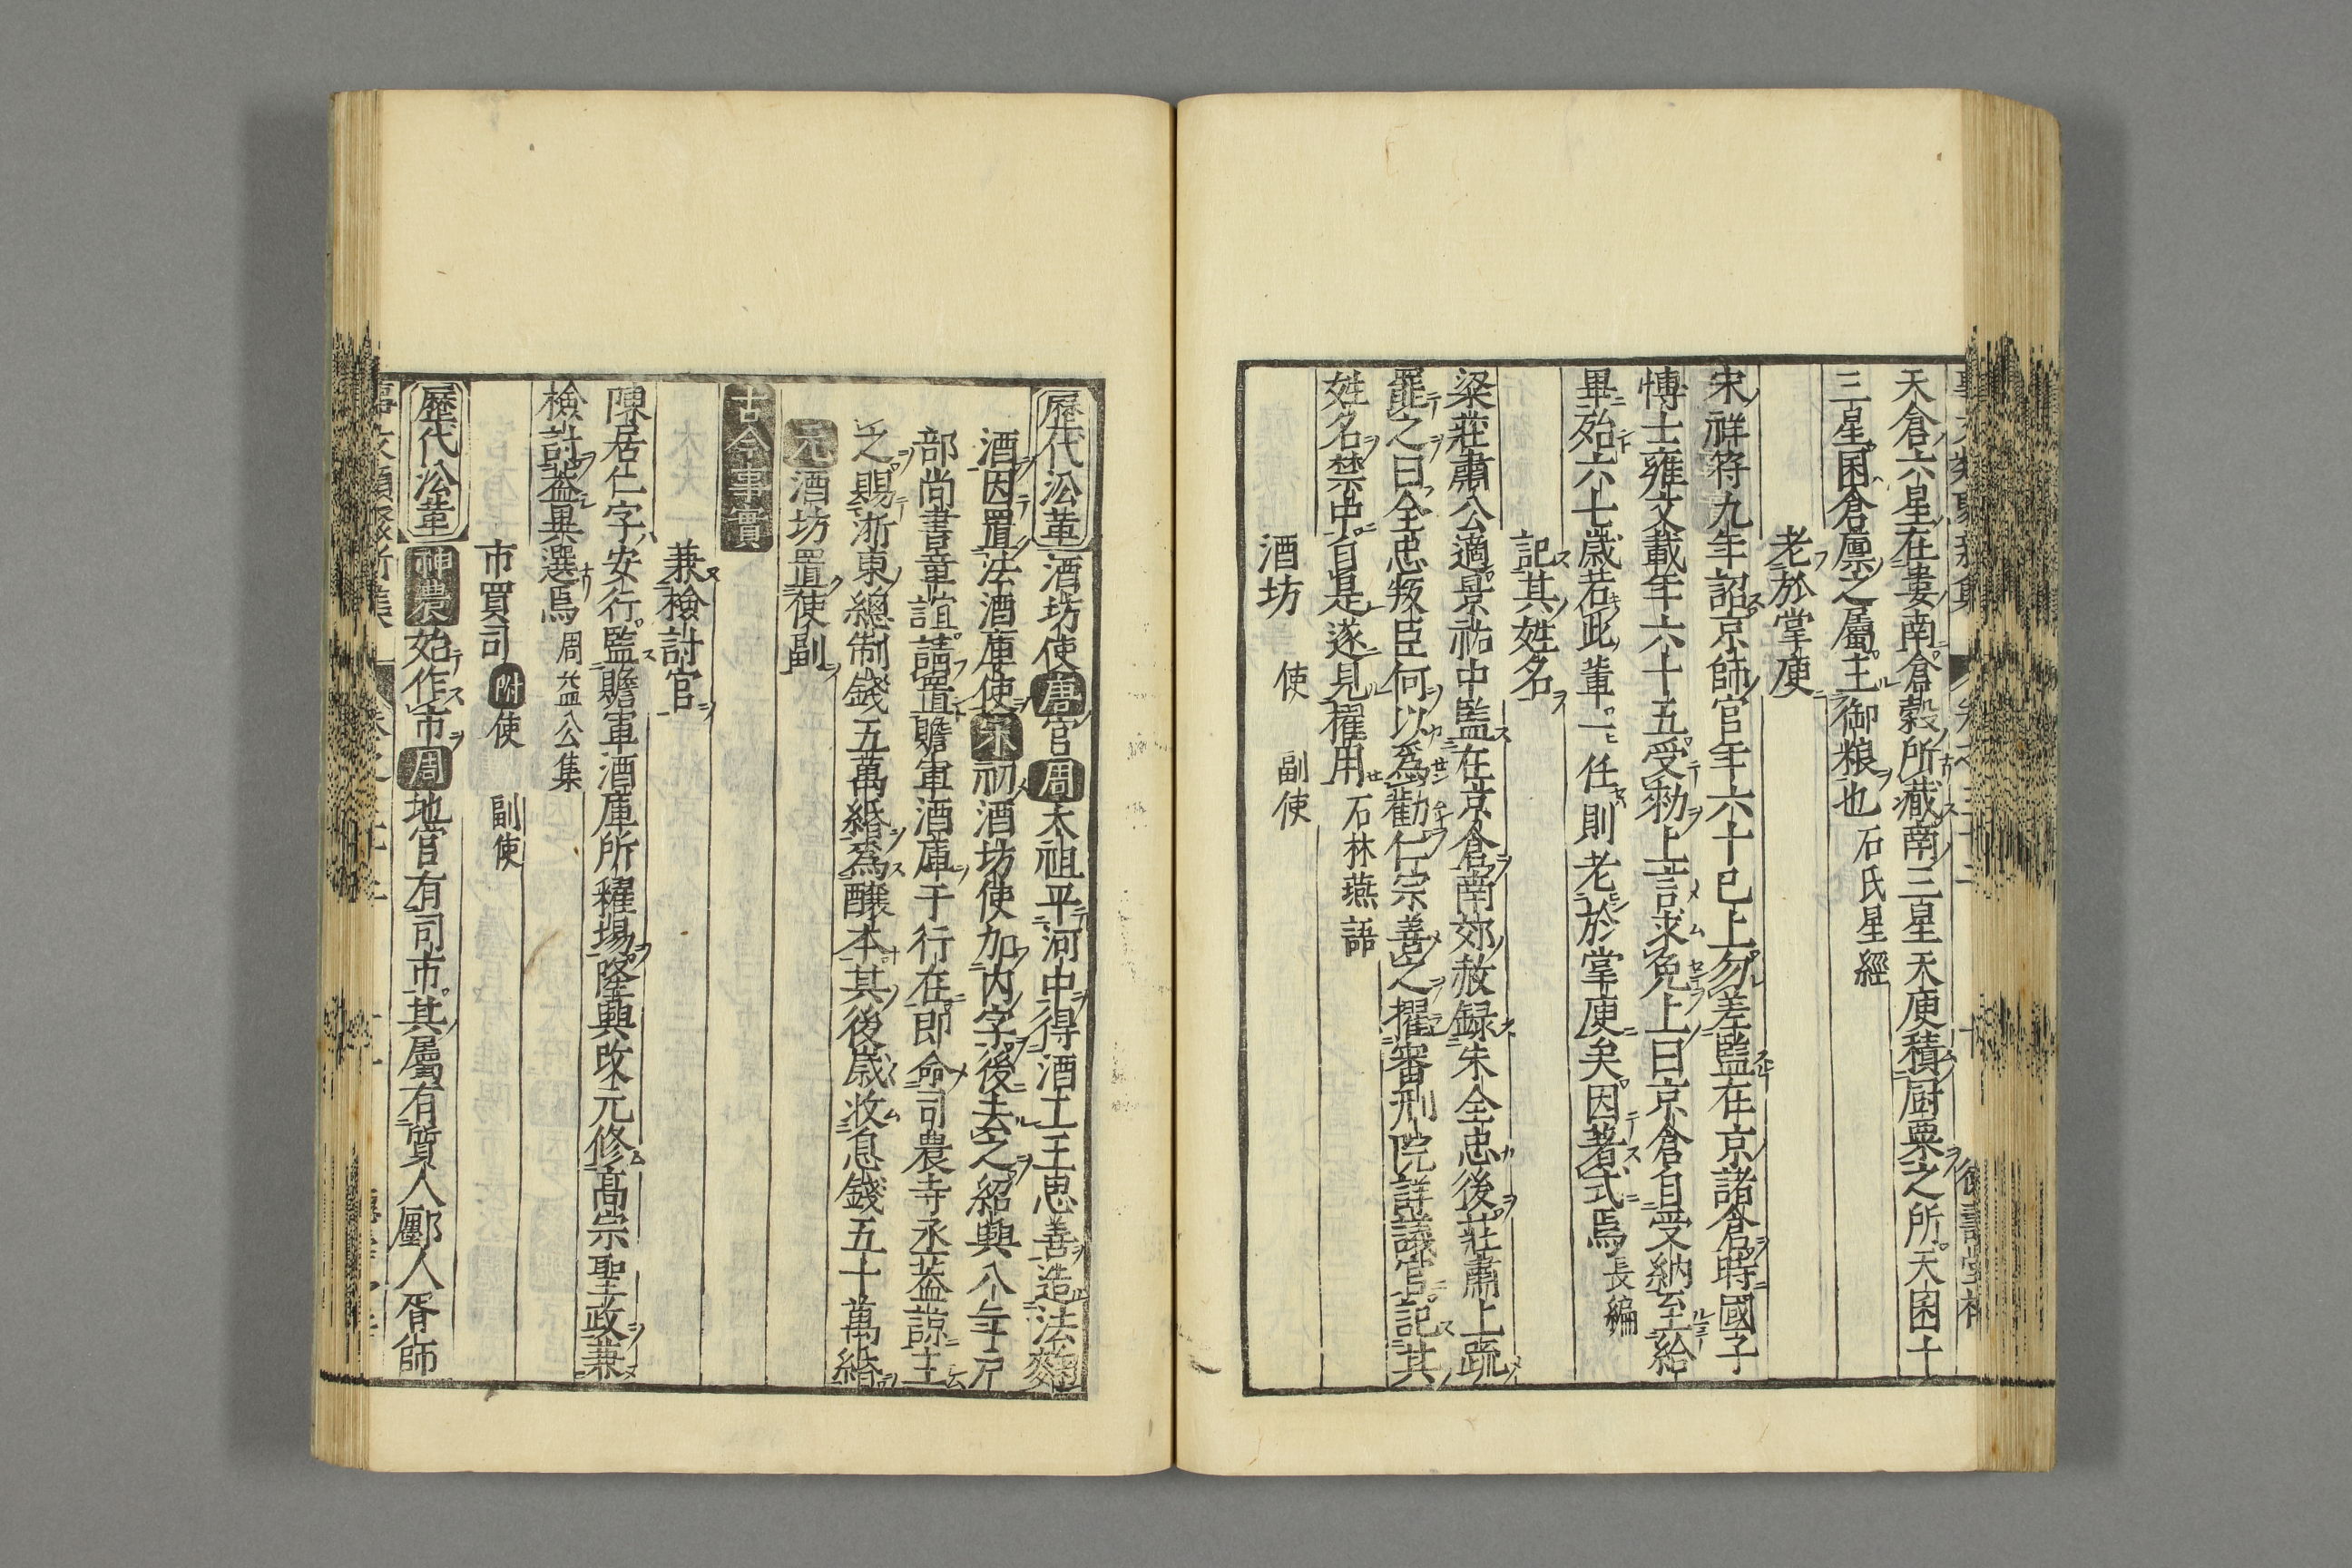 天倉六星在婁南倉穀所藏南三星天庾積厨粟之所天囷十
三星囷倉廩之屬主御粮也 石氏星經
老於掌庾
宋祥符九年詔京師官年六十已上勿差監在京諸倉時國子
博士雍文載年六十五受勅上言求免上曰京倉自受納至給
畢殆六七歲若此輩一任則老於掌庾矣因著式焉 長編
記其姓名
梁莊肅公適景祐中監在京倉南郊赦録朱全忠後莊肅上疏
罷之曰全忠叛臣何以爲勸仁宗善之擢審刑院詳議官記其
姓名禁中自是遂見擢用 石林燕語
酒坊 使 副使
歷代沿革 酒坊使唐官周太祖平河中得酒工王思善造法麴
酒因置法酒庫使宋初酒坊使加内字後去之紹興八年戸
部尚書章誼請置贍軍酒庫于行在即命司農寺丞蓋諒主
之賜浙東總制錢五萬緡爲釀本其後歲收息錢五十萬緡
元酒坊置使副
古今事實
兼檢討官
陳居仁字安行監贍軍酒庫所糴場隆興改元修髙宗聖政兼
檢討蓋異選焉 周益公集
市買司 附使 副使
歷代沿革 神農始作市周地官有司市其屬有質人廛人胥師